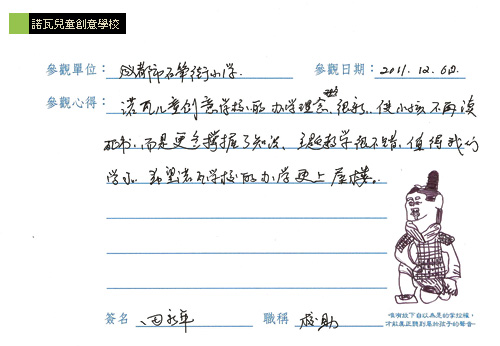 諾瓦兒童創意學校
參觀單位： 成都师 石笋街小学. 參觀日期： 2011. 12. 6日.
參觀心得： 诺瓦儿童创意学校的办学理念很新，使小孩不再读
死书，而是更主 掌握了知识、主题教学很不错，值得我们
学习. 希望诺瓦学校的办学更上层楼。
唯有放下自以為是的掌控權，
才能真正聽到屬於孩子的聲音。
簽名 田永 職稱 校助